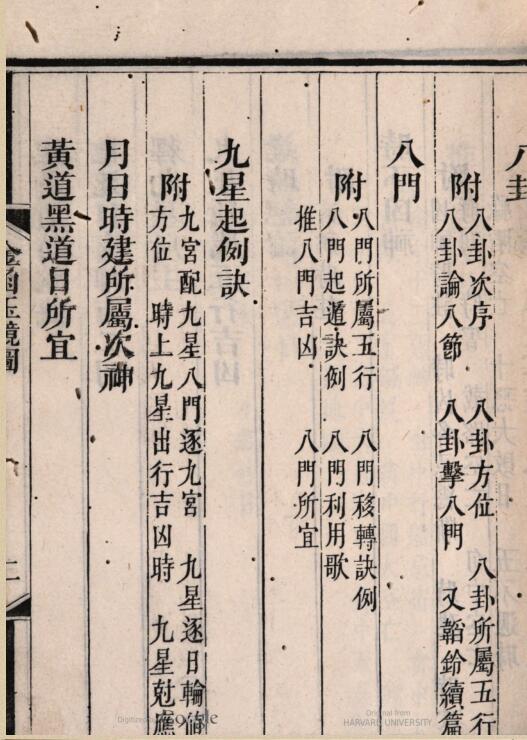 八卦
附
八卦次序 八卦方位 八卦所屬五行
八卦論八節 八卦擊八門 又韜鈐續篇
八門
附
八門所屬五行 八門移轉訣例
八門起遁訣例 八門利用歌
推八門吉凶 八門所宜
九星起例訣
附
九宮配九星八門逐九宮 九星逐日輪
方位 時上九星出行吉凶時 九星尅應
月日時建所屬次神
黃道黑道日所宜
金函玉鏡圖
二
Digitized by Google
Original from
HARVARD UNIVERSITY